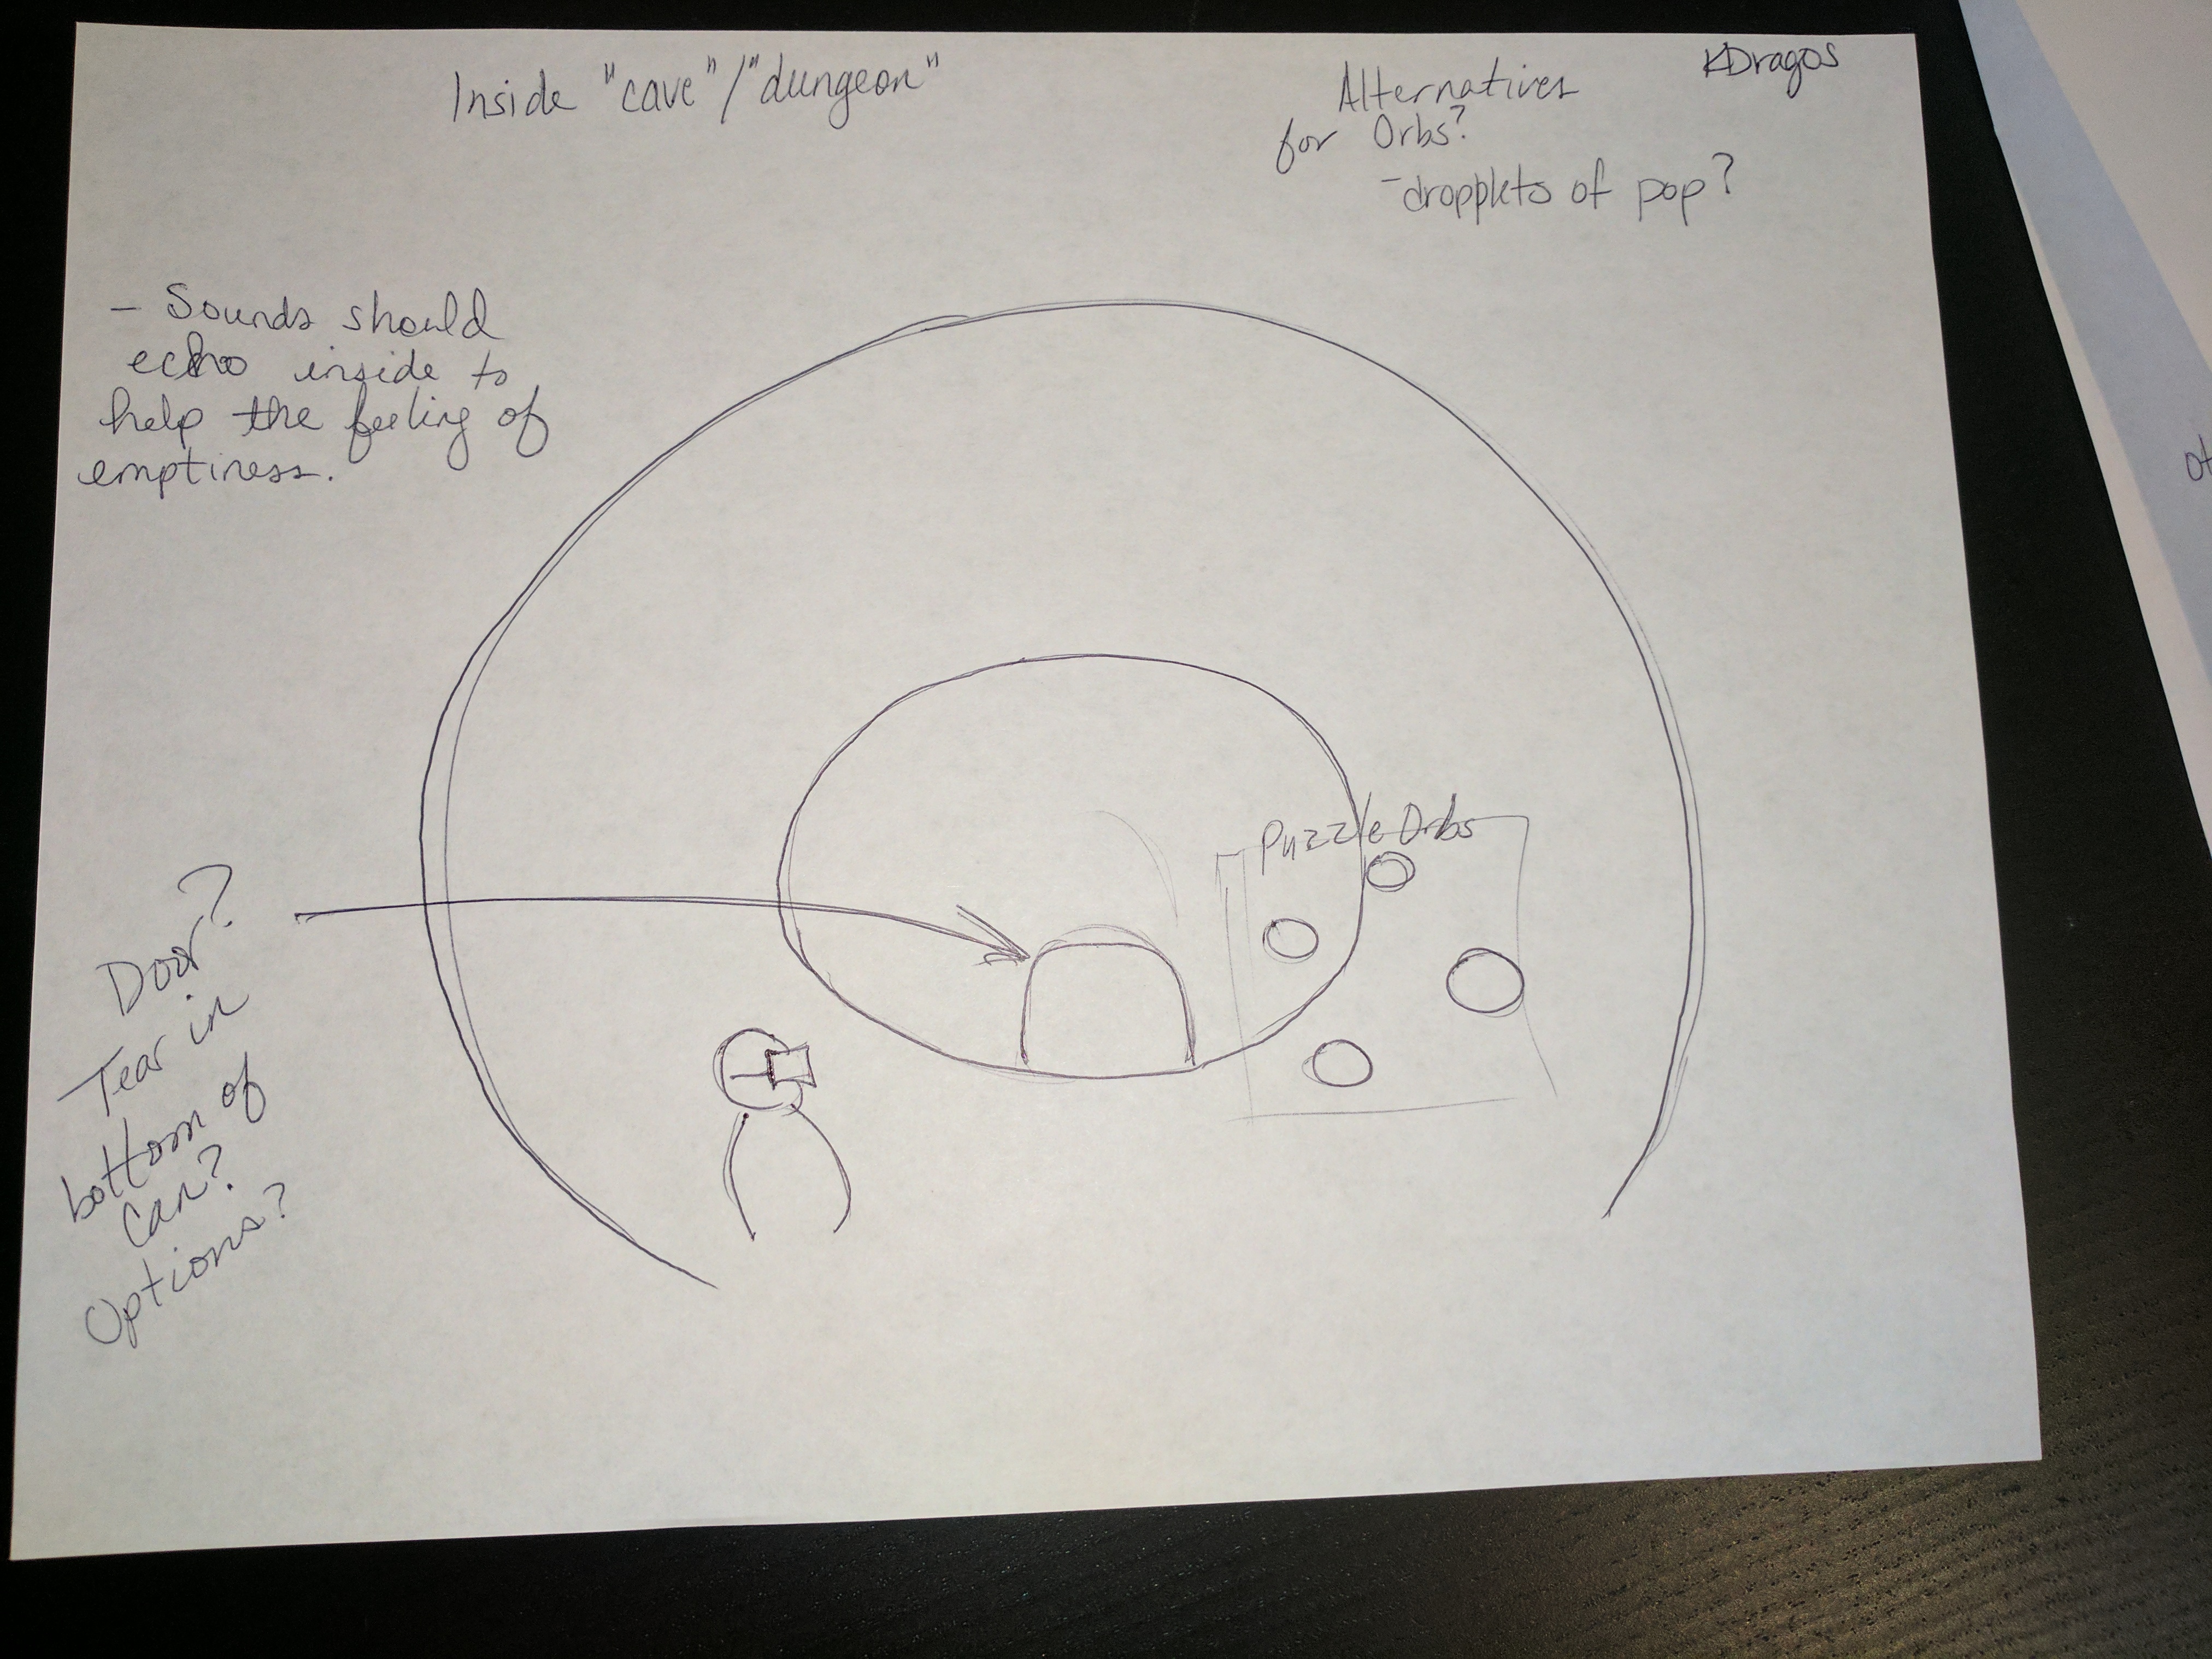 Inside "cave"/"dungeon"
KDragos
Alternatives
for Orbs?
- dropplets of pop?
- Sounds should
echo inside to
help the feeling of
emptiness.
Puzzle Orbs
Door?
Tear in
bottom of
can?
Options?
ot